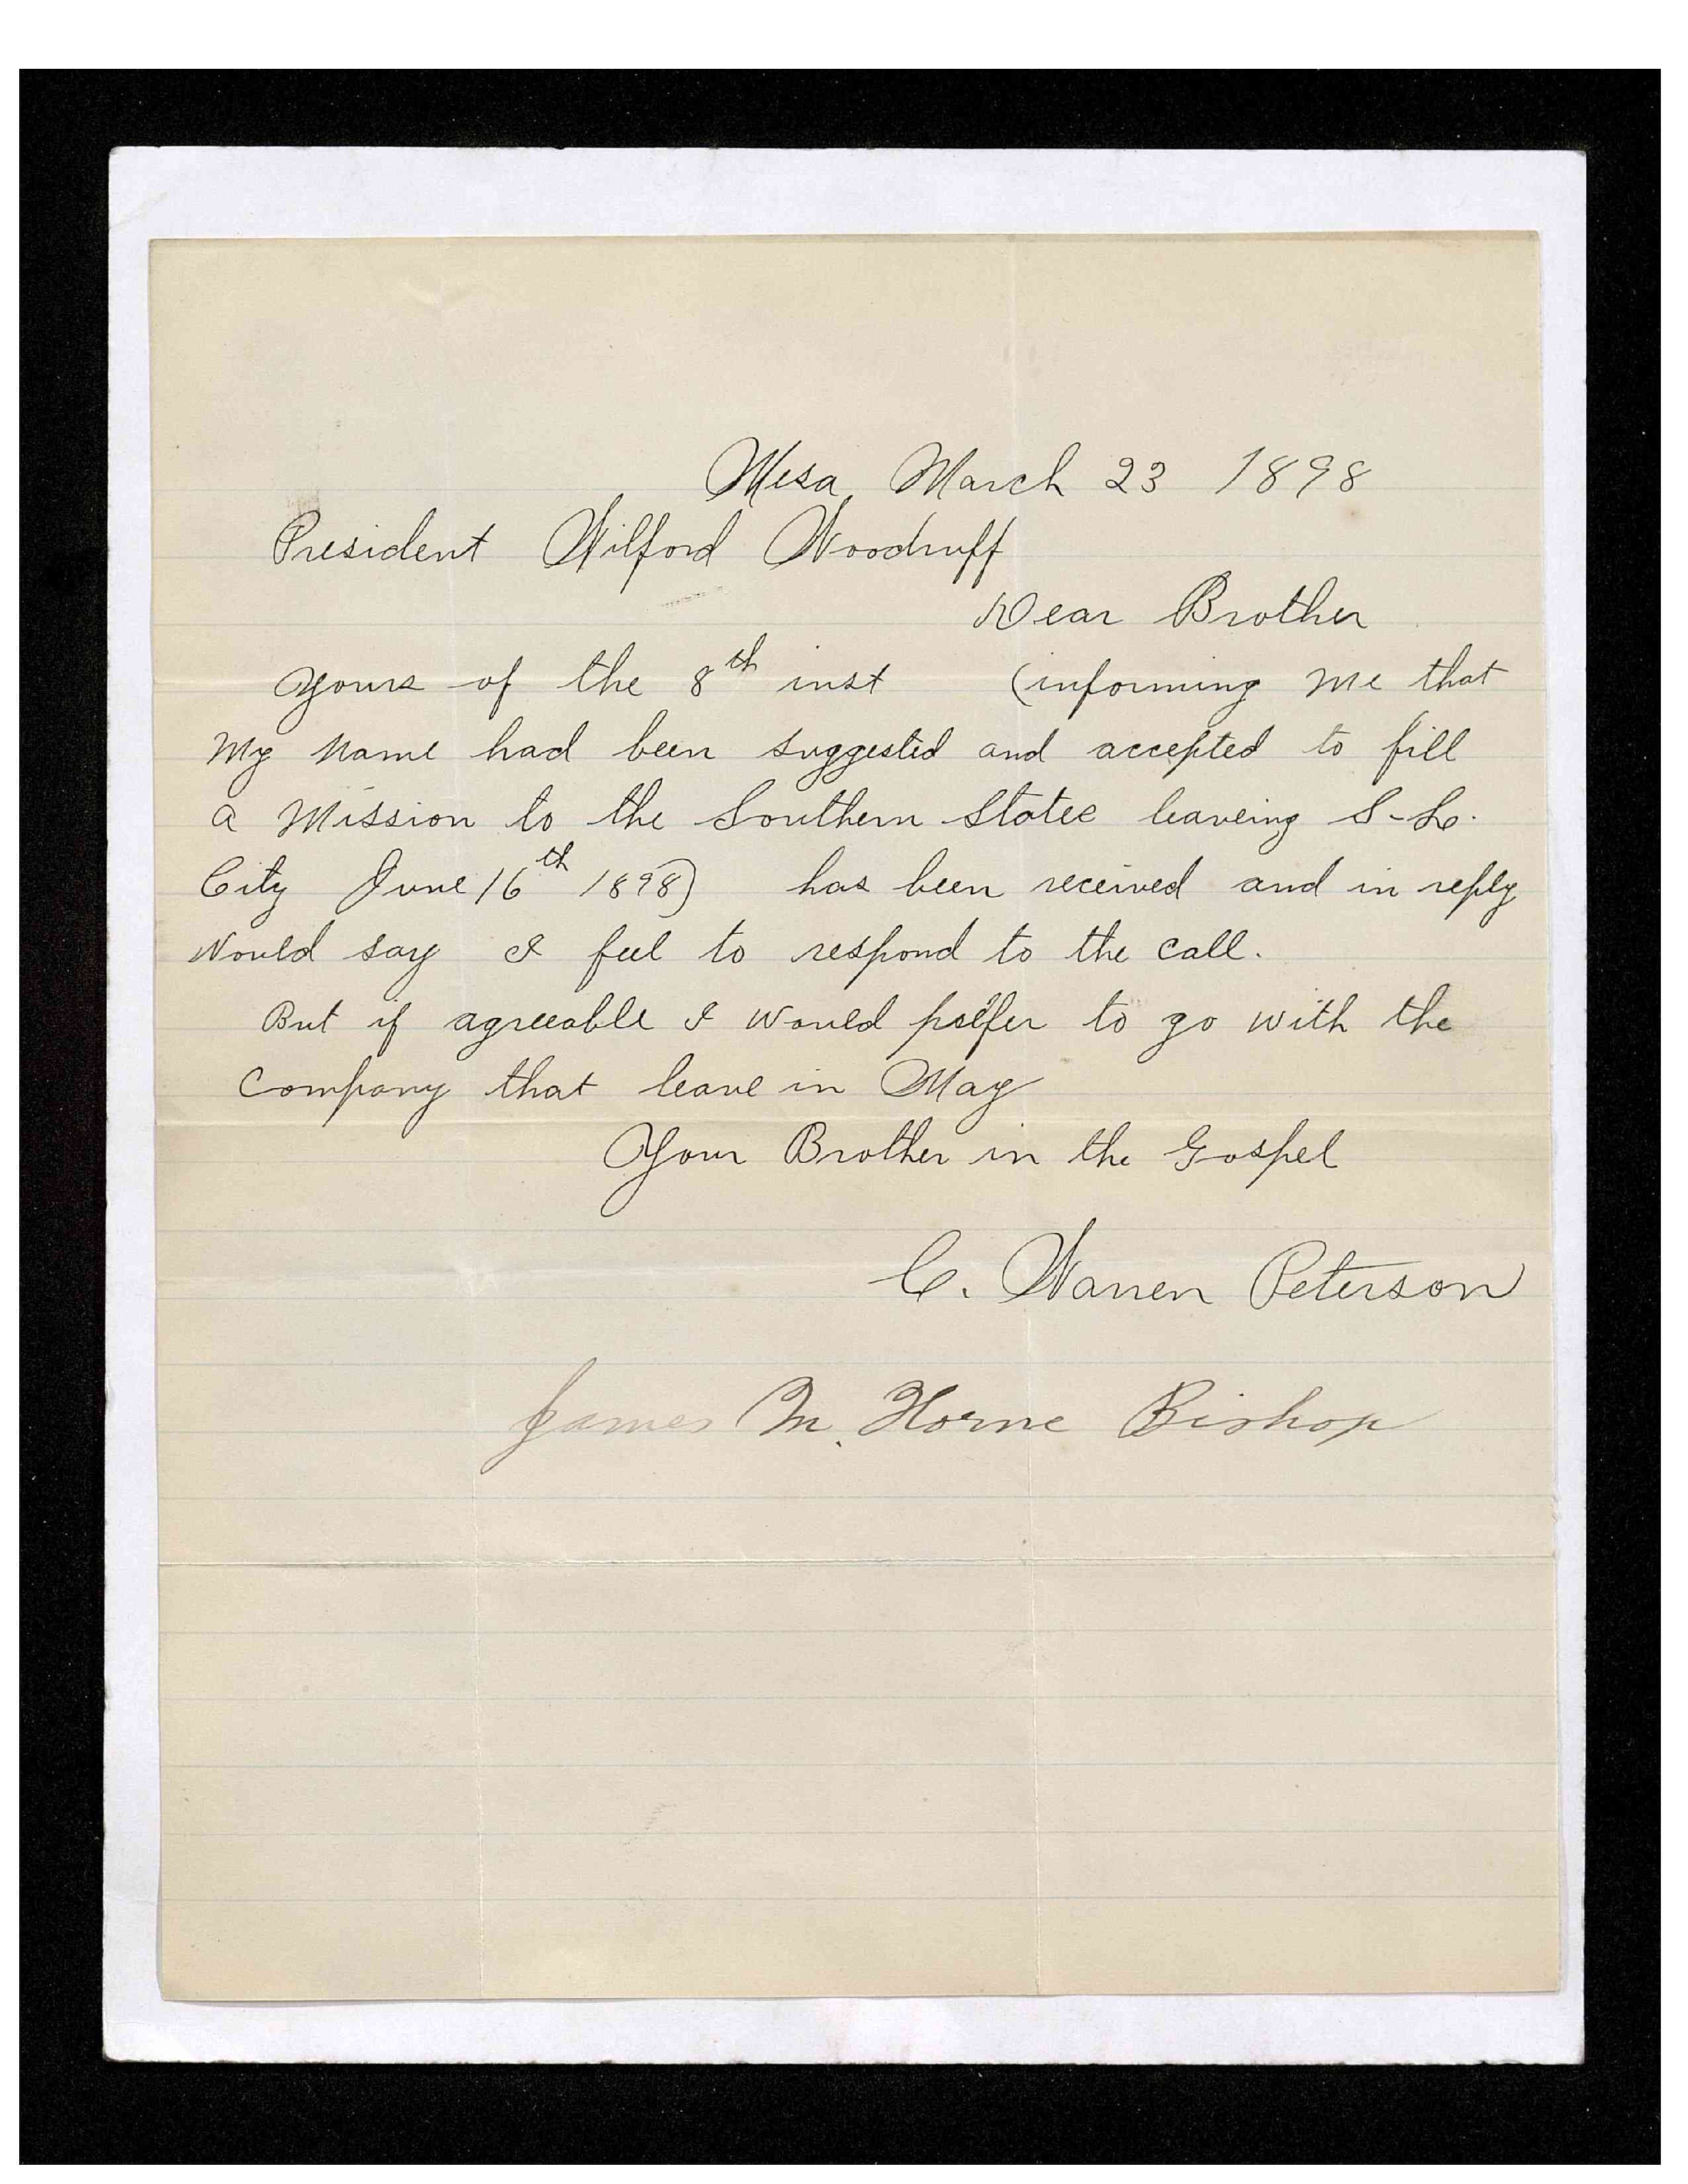 Mesa, March 23 1898
President Wilford Woodruff
Dear Brother
Yours of the 8th inst (informing me that
My Name had been suggested and accepted to fill
a Mission to the Southern States leaveing S-L.
City June 16th 1898) has been received and in reply
Would say I feel to respond to the call.
But if agreeable I would prefer to go with the
Company that leave in May
Your Brother in the Gospel
C. Warren Peterson
James M. Horne Bishop